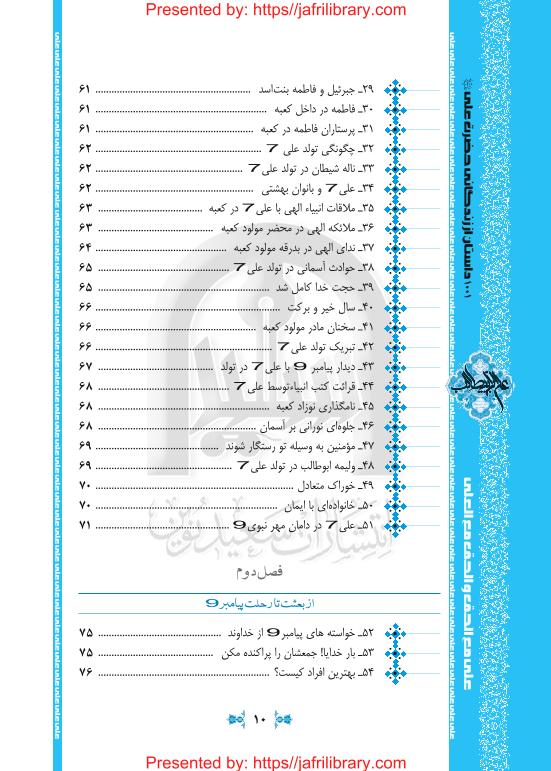 Presented by: https//jafrilibrary.com
۲۹ـ جبرئیل و فاطمه بنت‌اسد ................................................ ۶۱
۳۰ـ فاطمه در داخل کعبه ................................................ ۶۱
۳۱ـ پرستاران فاطمه در کعبه ................................................ ۶۱
۳۲ـ چگونگی تولد علی 7 ................................................ ۶۲
۳۳ـ ناله شیطان در تولد علی 7 ................................................ ۶۲
۳۴ـ علی 7 و بانوان بهشتی ................................................ ۶۲
۳۵ـ ملاقات انبیاء الهی با علی 7 در کعبه ................................ ۶۳
۳۶ـ ملائکه الهی در محضر مولود کعبه ................................ ۶۳
۳۷ـ ندای الهی در بدرقه مولود کعبه ................................ ۶۴
۳۸ـ حوادث آسمانی در تولد علی 7 ................................ ۶۵
۳۹ـ حجت خدا کامل شد ................................................ ۶۵
۴۰ـ سال خیر و برکت ................................................ ۶۶
۴۱ـ سخنان مادر مولود کعبه ................................................ ۶۶
۴۲ـ تبریک تولد علی 7 ................................................ ۶۶
۴۳ـ دیدار پیامبر 9 با علی 7 در تولد ................................ ۶۷
۴۴ـ قرائت کتب انبیاءتوسط علی 7 ................................ ۶۸
۴۵ـ نامگذاری نوزاد کعبه ................................................ ۶۸
۴۶ـ جلوه‌ای نورانی بر آسمان ................................................ ۶۸
۴۷ـ مؤمنین به وسیله تو رستگار شوند ................................ ۶۹
۴۸ـ ولیمه ابوطالب در تولد علی 7 ................................ ۶۹
۴۹ـ خوراک متعادل ................................................ ۷۰
۵۰ـ خانواده‌ای با ایمان ................................................ ۷۰
۵۱ـ علی 7 در دامان مهر نبوی 9 ................................ ۷۱
فصل دوم
از بعثت تا رحلت پیامبر 9
۵۲ـ خواسته های پیامبر 9 از خداوند ................................ ۷۵
۵۳ـ بار خدایا! جمعشان را پراکنده مکن ................................ ۷۵
۵۴ـ بهترین افراد کیست؟ ................................................ ۷۶
۱۰
Presented by: https//jafrilibrary.com
۱۰۰۱ داستان از زندگانی حضرت علی
علی مع الحق و الحق مع العلی